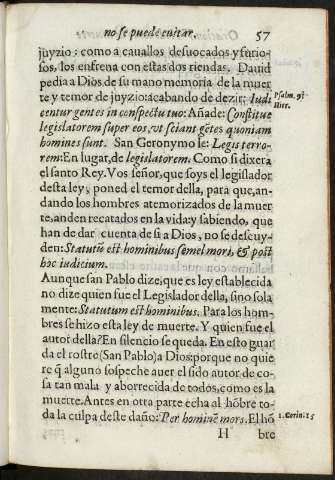 no se puede euitar. 57
juyzio: como a cauallos desuocados y furio-
sos, los enfrena con estas dos riendas. Dauid
pedia a Dios de su mano memoria de la muer
te y temor de juyzio: acabando de dezir: Iudi
centur gentes in conspectu tuo: Añade: Constitue
Psalm. 9.
Hier.
legislatorem super eos, vt sciant gētes quoniam
homines sunt. San Geronymo lee: Legis terro-
rem: En lugar, de legislatorem. Como si dixera
el santo Rey. Vos señor, que soys el legislador
desta ley, poned el temor della, para que, an-
dando los hombres atemorizados de la muer
te, anden recatados en la vida: y sabiendo, que
han de dar cuenta de si a Dios, no se descuy-
den: Statutū est hominibus semel mori, & post
hoc iudicium.
Aunque san Pablo dize, que es ley establecida
no dize quien fue el Legislador della, sino sola
mente: Statutum est hominibus. Para los hom-
bres se hizo esta ley de muerte. Y quien fue el
autor della? En silencio se queda. En esto guar
da el rostro (San Pablo) a Dios: porque no quie
re q̄ alguno sospeche auer el sido autor de co-
sa tan mala y aborrecida de todos, como es la
muerte. Antes en otra parte echa al hōbre to-
da la culpa deste daño: Per hominē mors. El hō
1. Corin. 15
H bre